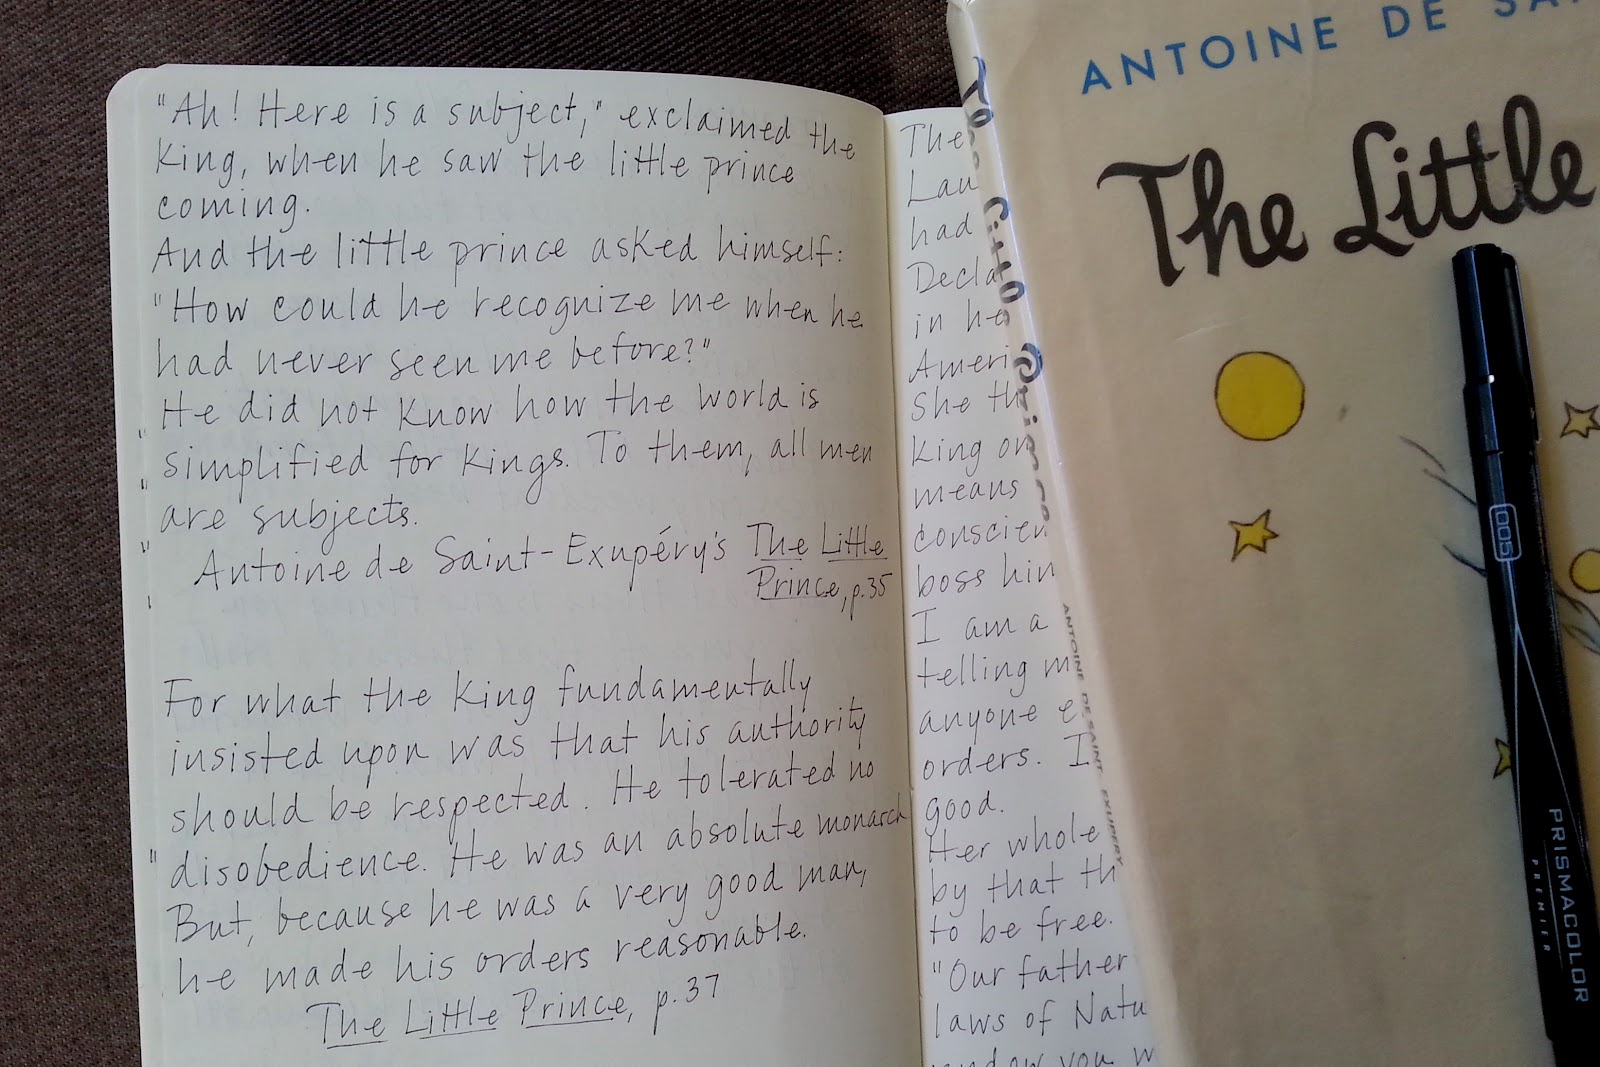 "Ah! Here is a subject," exclaimed the
King, when he saw the little prince
coming.
And the little prince asked himself:
"How could he recognize me when he
had never seen me before?"
He did not know how the world is
simplified for Kings. To them, all men
are subjects.
Antoine de Saint-Exupéry's The Little
Prince, p.35
For what the King fundamentally
insisted upon was that his authority
should be respected. He tolerated no
disobedience. He was an absolute monarch
But, because he was a very good man,
he made his orders reasonable.
The Little Prince, p.37
The
Lau
had
Decla
in he
Ameri
She th
King on
means
conscien
boss him
I am a
telling m
anyone e
orders. I
good.
Her whole
by that th
to be free.
"Our father
laws of Natu
you w
The Little Prince
ANTOINE DE SAINT EXUPÉRY
ANTOINE DE SA
The Little
005
PRISMACOLOR
PREMIER